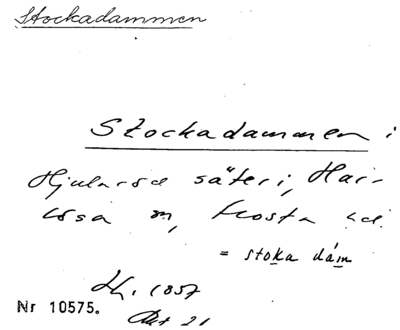 Stockadammen
Stockadammen i
Hjularöd säteri, Har-
lösa sn, Frosta hd.
= stoka dám
Lk. 1857
Akt 21
Nr 10575.